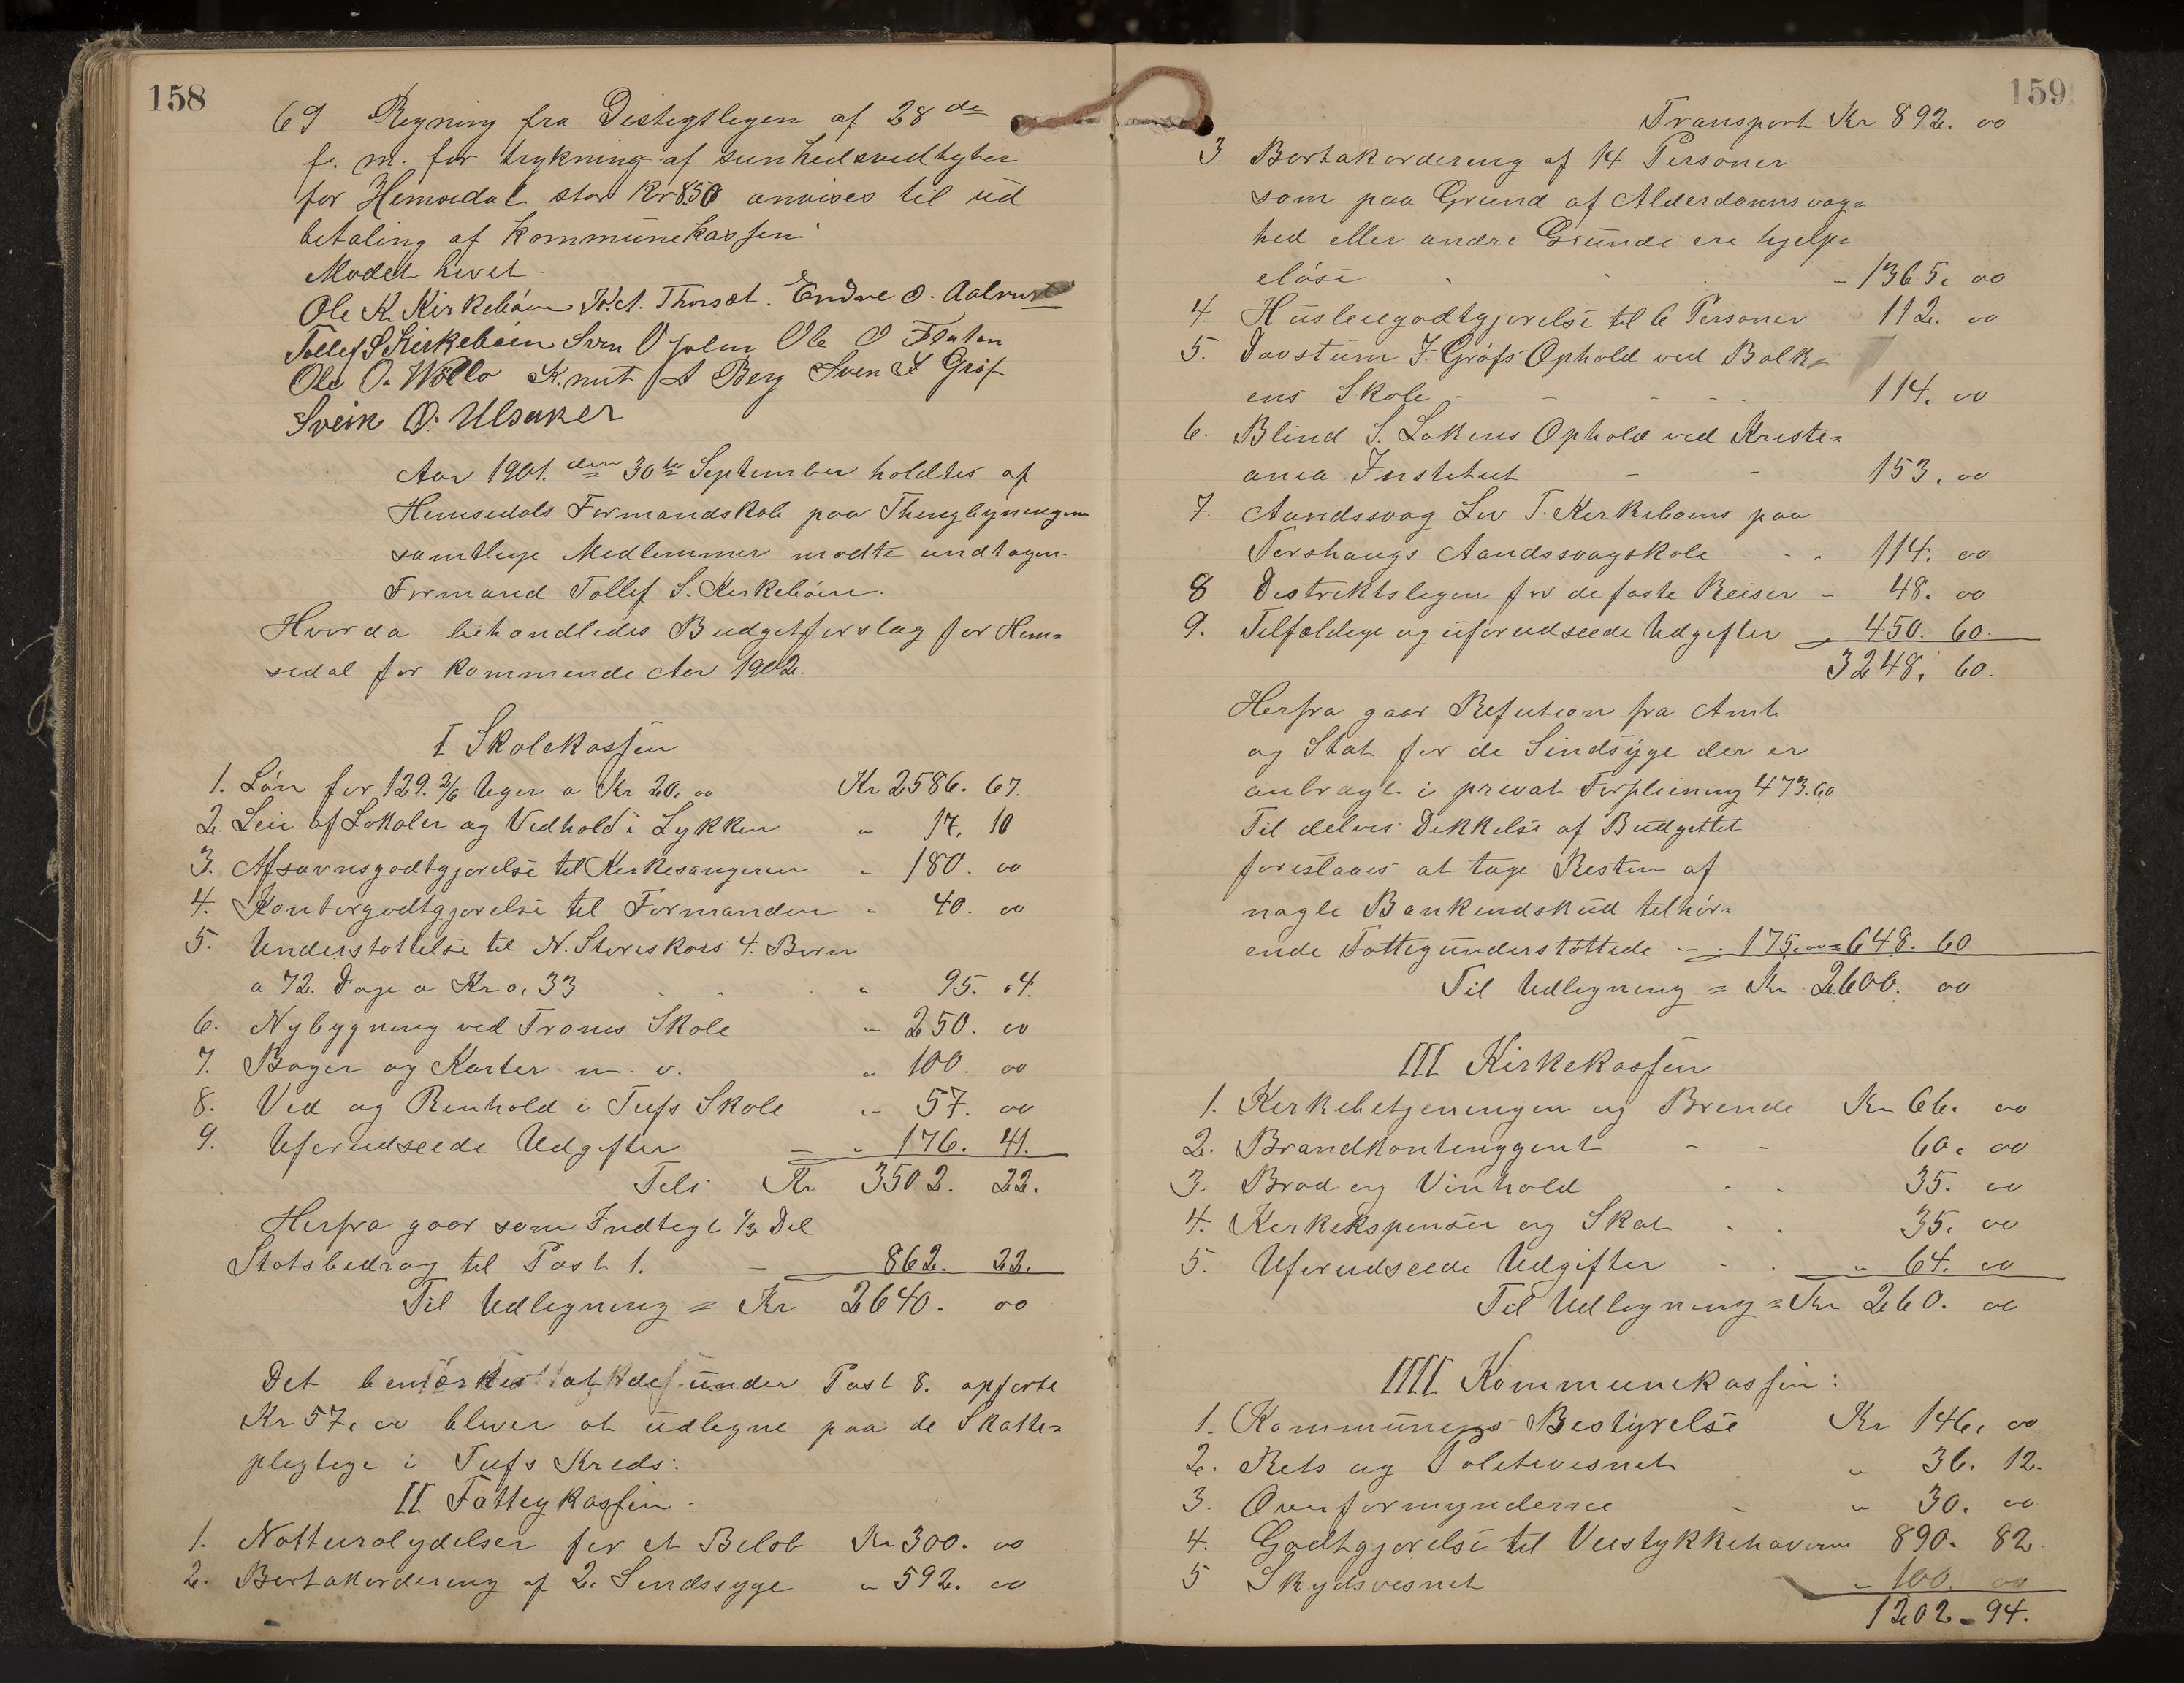 158
69 Regning fra Distegtslegen af 28de
f. m. for trykning af sunhedsvedtgter
for Hemsedal stor Kr 8.50 anvises til ud
betaling af Kommunekassen
Mødet hevet.
Ole K. Kirkebøen K. A. Thorset. Endre O. Aalrust
Tollef S Kirkebøen Sven O Ole O Flaten
Ole O. Wøllo Knut A Berg Sven S Grøf
Svein O. Ulsaker
Aar 1901. den 30te September holdtes af
Hemsedals Formandskab paa Thingbyningen
samtlige Medlemmer mødte undtagen.
Formand Tollef S. Kirkebøen.
Hvorda behandledes Budgetforslag for Hem=
sedal for kommende Aar 1902.
I Skolekassen
1. Løn for 129. 2/6 Uger a Kr 20. 00 Kr 2586. 67.
2. Leie af Lokaler og Vedhold i Lykken " 17. 10
3. Afsavnsgodtgjørelse til Kirkesangeren " 180. 00
4. Kontorgodtgjørelse til Formanden " 40. 00
5. Understøttelse til N. Storeskars 4. Børn
a 72. Dage a Kr 0. 33 " 95. 04.
6. Nybygning ved Trøms Skole " 250. 00
7. Bøger og Karter m. v. " 100. 00
8. Ved og Renhold i Tufs Skole " 57. 00
9. Uforudseede Udgifter " 176. 41.
Tils. Kr 3502. 22.
Herfra gaar som Indtegt 1/3 Del
Statsbedrag til Post 1. 862. 22.
Til Udligning = Kr 2640. 00
Det bemærkes at de under Post 8. opførte
Kr 57. 00 bliver at udligne paa de Skatte=
pligtige i Tufs Kreds.
II Fattigkassen.
1. Natturalydelser for et Beløb Kr 300. 00
2. Bortakordering af 2. Sindssyge " 592. 00
159
Transport Kr 892. 00
3. Bortakordering af 14 Personer
som paa Grund af Alderdomssvag=
hed eller andre Grunde ere hjelp=
eløse - 1365. 00
4. Husleiegodtgjørelse til 6 Personer 112. 00
5. Døvstum J. Grøfs Ophold ved Balk=
ens Skole - 114. 00
6. Blind S. Løkens Ophold ved Kristi=
ania Institut - - 153. 00
7. Aandssvag Liv T. Kirkebøens paa
Torshaugs Aandssvagskole - - 114. 00
8 Distriktslegen for de faste Reiser - 48. 00
9. Tilfældige og uforudseede Udgifter 450. 60.
3248. 60.
Herfra gaar Refution fra Amt
og Stat for de Sindsyge der er
anbragt i privat Forpleining 473.60
Til delvis Dekkelse af Budgettet
foreslaaes at tage Resten af
nogle Bankindskud tilhør=
ende Fattigunderstøttede - 175. 00 = 648. 60
Til Udligning = Kr. 2600. 00
III Kirkekassen
1. Kirkebetjeningen og Brende Kr 66. 00
2. Brandkontinggent - - 60. 00
3. Brød og Vinhold - - 35. 00
4. Kirkekspenser og Skat - - 35. 00
5. Uforudseede Udgifter - - " 64. 00
Til Udligning = Kr 260. 00
IIII Kommunekassen:
1. Kommunens Bestyrelse Kr 146. 00
2. Rets og Politivesnet " 36. 12.
3. Overformynderne - " 30. 00
4. Godtgjørelse til Veistykkehaverne 890. 82.
5 Skydsvesnet - 100. 00
1202 - 94.